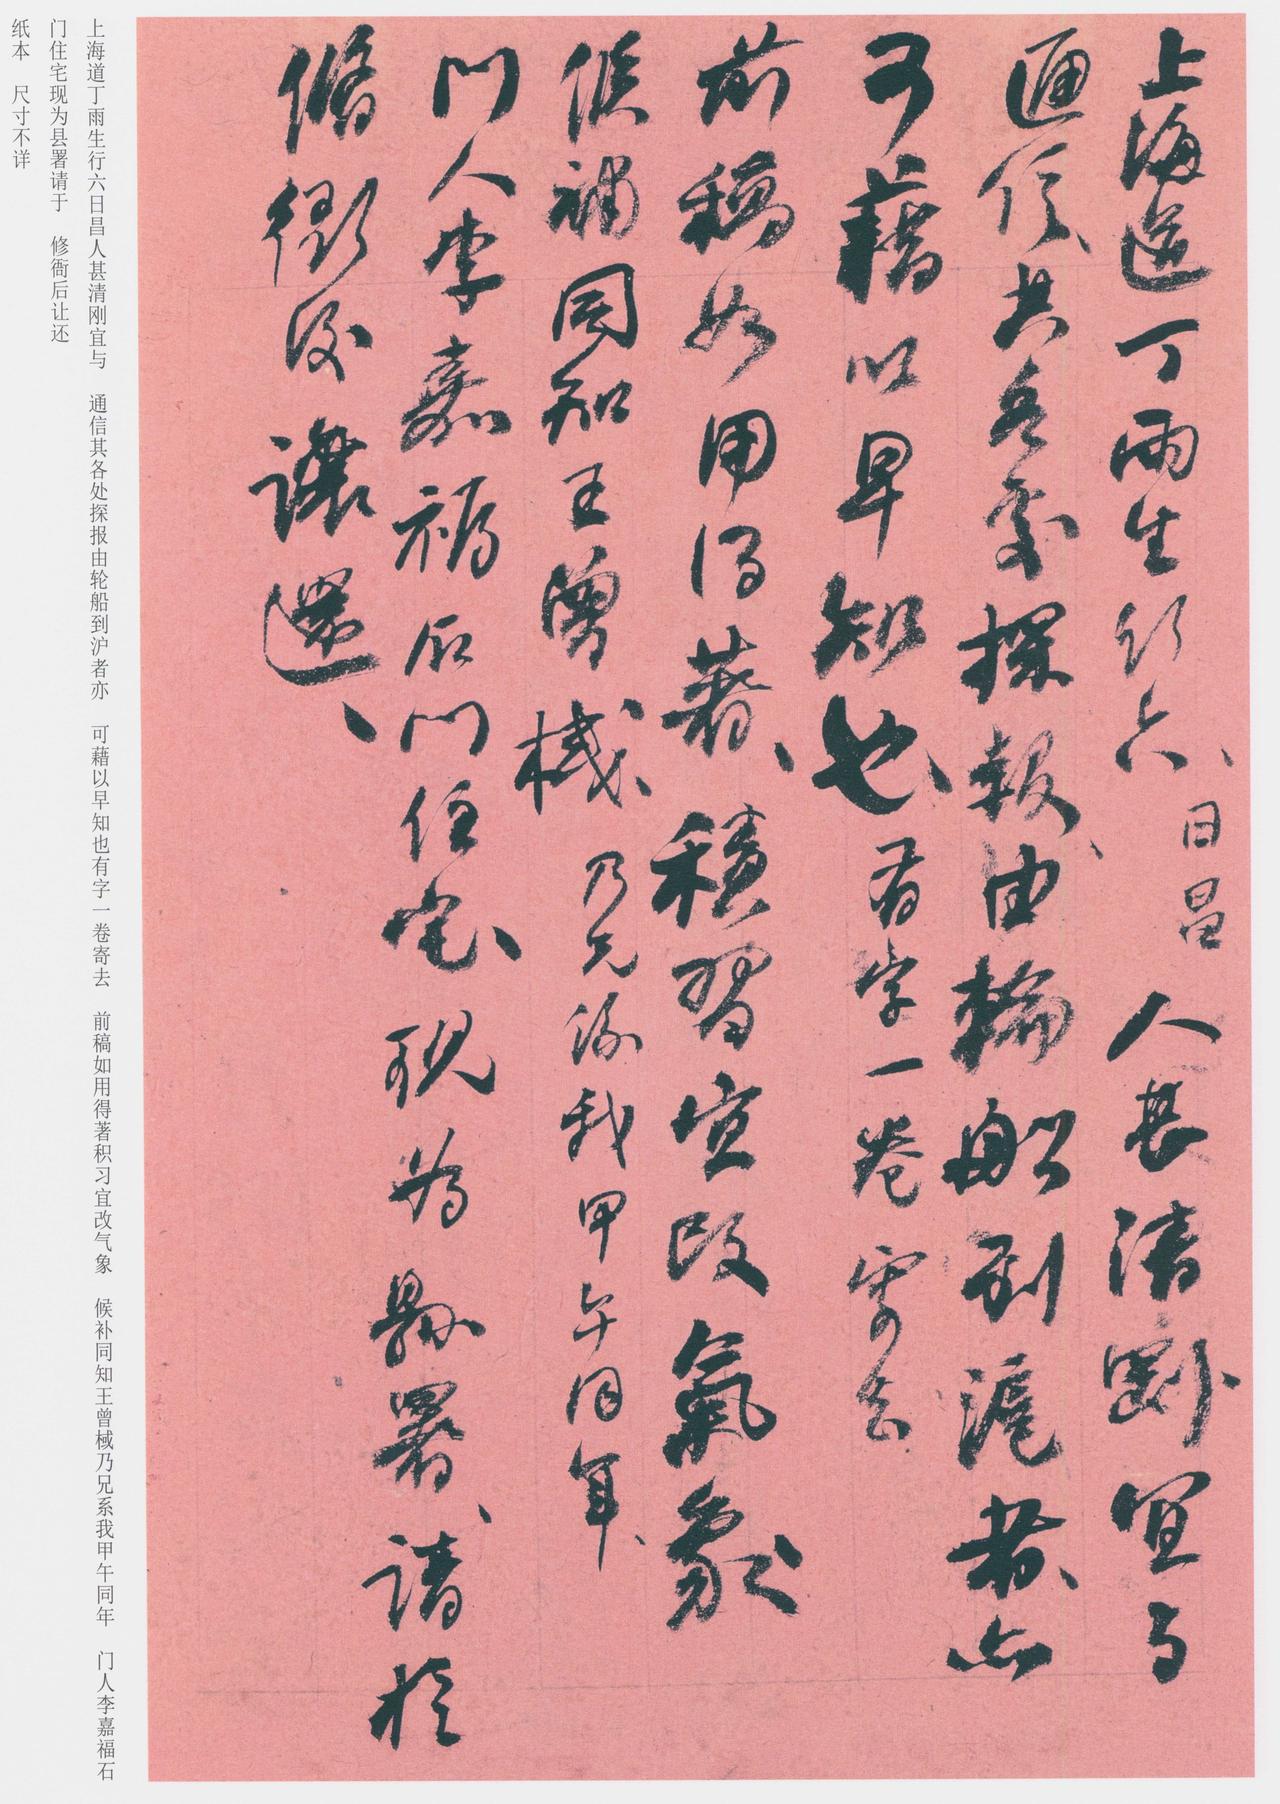 上海道丁雨生行六日昌人甚清剛宜与
通信其各處探報由輪船到滬者亦
可藉以早知也有字一卷寄去
前稿如用得著積習宜改氣象
候補同知王曾棫乃兄係我甲午同年
門人李嘉福石門住宅現為縣署請於
脩衙後讓還
上海道丁雨生行六日昌人甚清刚宜与　通信其各处探报由轮船到沪者亦　可藉以早知也有字一卷寄去　前稿如用得著积习宜改气象　候补同知王曾棫乃兄系我甲午同年　门人李嘉福石
门住宅现为县署请于　修衙后让还
纸本　尺寸不详